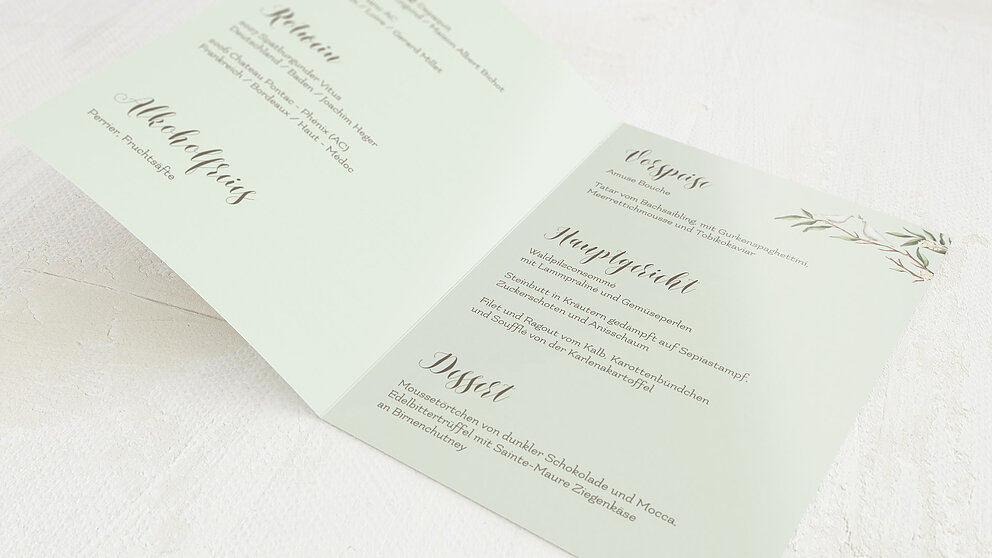 Gerard Millet
Maison Albert Bichot
Rotwein
2007 Spätburgunder Vitus
Deutschland / Baden / Joachim Heger
2006 Chateau Pontac - Phenix (AC)
Frankreich / Bordeaux / Haut - Medoc
Alkoholfreies
Perrier, Fruchtsäfte
Vorspeise
Amuse Bouche
Tatar vom Bachsaibling, mit Gurkenspaghettini,
Meerrettichmousse und Tobikokaviar
Hauptgericht
Waldpilzconsommé
mit Lammpraline und Gemüseperlen
Steinbutt in Kräutern gedämpft auf Sepiastampf,
Zuckerschoten und Anisschaum
Filet und Ragout vom Kalb, Karottenbündchen
und Soufflé von der Karlenakartoffel
Dessert
Moussetörtchen von dunkler Schokolade und Mocca,
Edelbittertrüffel mit Sainte-Maure Ziegenkäse
an Birnenchutney